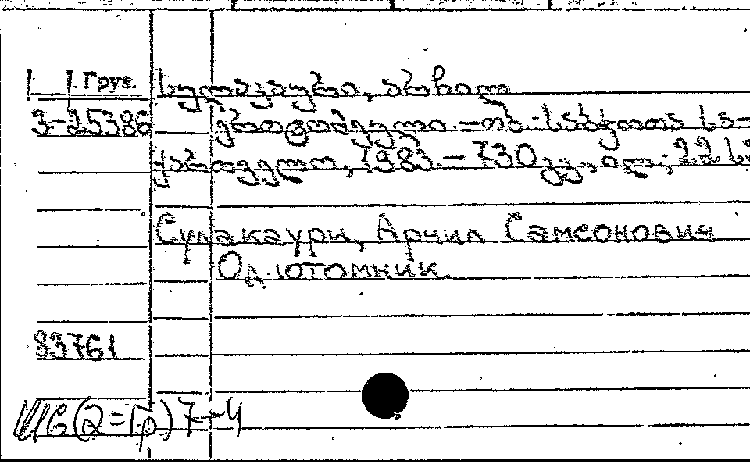 Груз. სულაკაური, არჩილ
3-25386 ერთტომეული. – თბ.: საბჭოთა სა-
ქართველო, 1983. – 730გვ., ილ.; 22 ს
Сулакаури, Арчил Самсонович
Однотомник.
83761
(2=Гр) 7-4